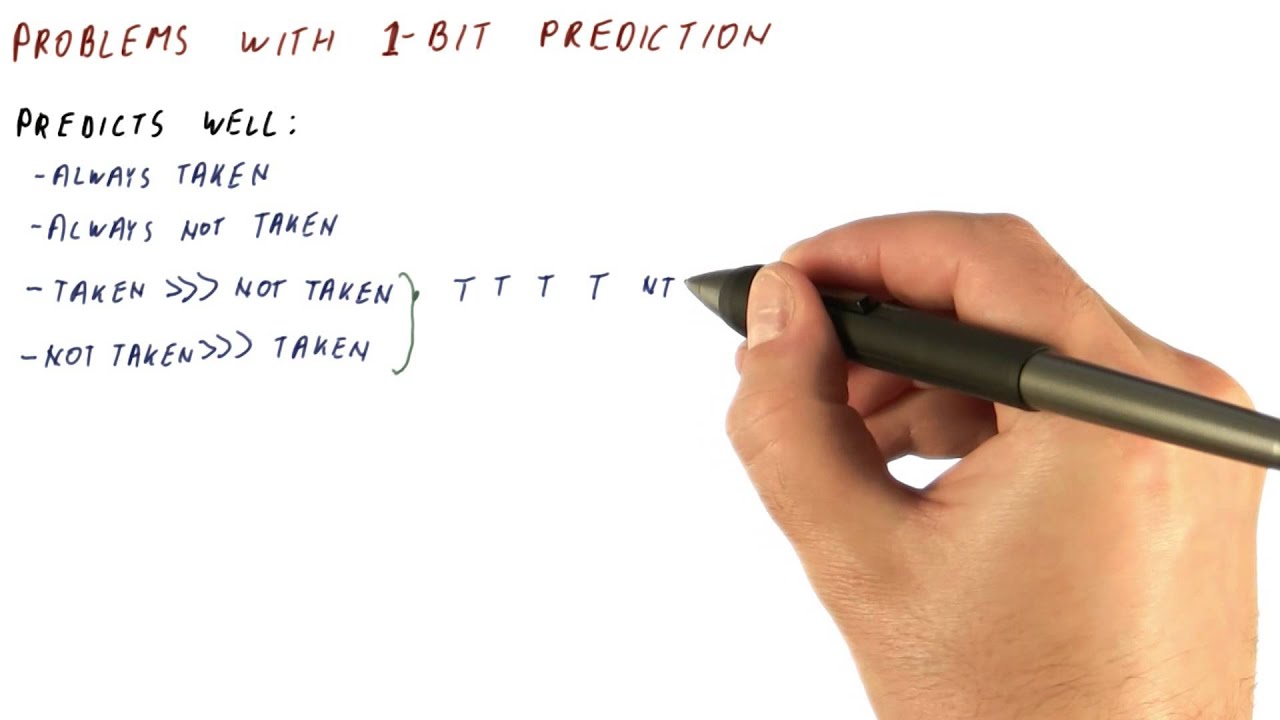 PROBLEMS WITH 1-BIT PREDICTION
PREDICTS WELL:
-ALWAYS TAKEN
-ALWAYS NOT TAKEN
-TAKEN >>> NOT TAKEN} T T T T NT
-NOT TAKEN>>> TAKEN